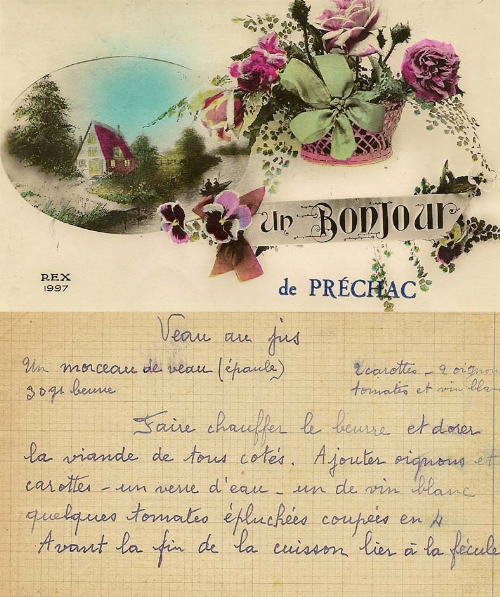 Un BONJOUR
REX
1997
de PRÉCHAC
Veau au jus
Un morceau de veau (épaule)
30gr beurre
2 carottes - 2 oignons
tomates et vin blanc
Faire chauffer le beurre et dorer
la viande de tous cotés. Ajouter oignons et
carottes - un verre d'eau - un de vin blanc
quelques tomates épluchées coupées en 4
Avant la fin de la cuisson lier à la fécule